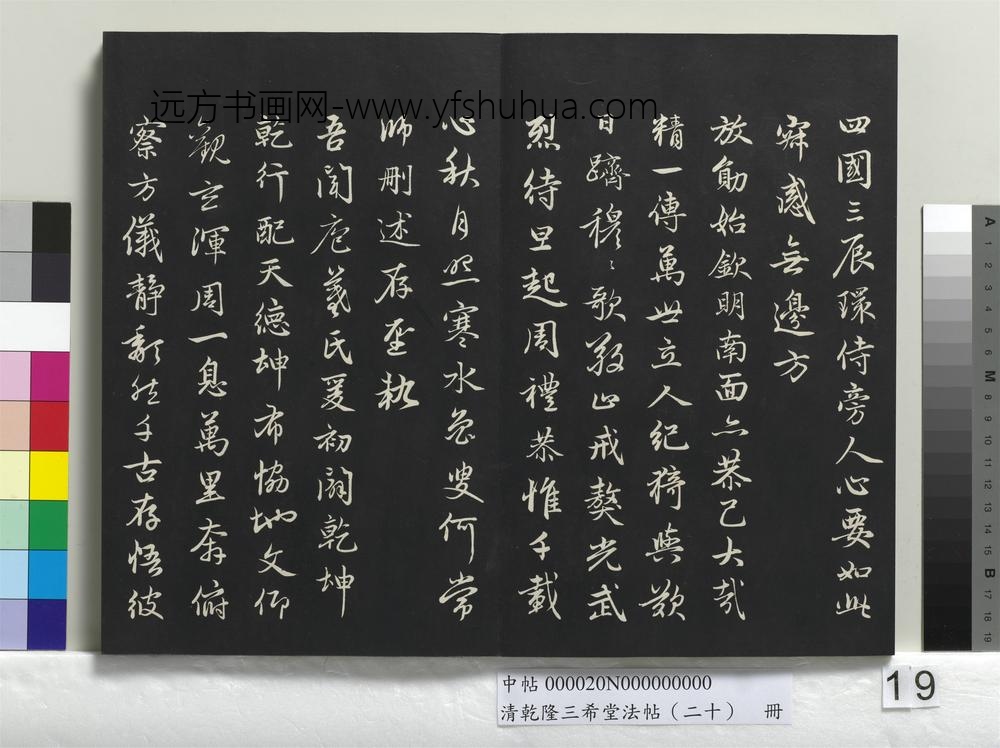 远方书画网-www.yfshuhua.com
四國三辰環侍旁人心要如此
寂感無邊方
放勛始欽明南面亦恭己大哉
精一傳萬世立人紀猗與歎
日躋穆〻歌敬止戒獒光武
烈待旦起周禮恭惟千載
心秋月照寒水魯叟何常
師刪述存聖軌
吾聞庖羲氏爰初闢乾坤
乾行配天德坤布協地文仰
觀玄渾周一息萬里奔俯
察方儀靜隤然千古存悟彼
中帖 000020N000000000
清乾隆三希堂法帖（二十） 冊
19
A
1
2
3
4
5
6
M
8
9
10
11
12
13
14
15
B
17
18
19